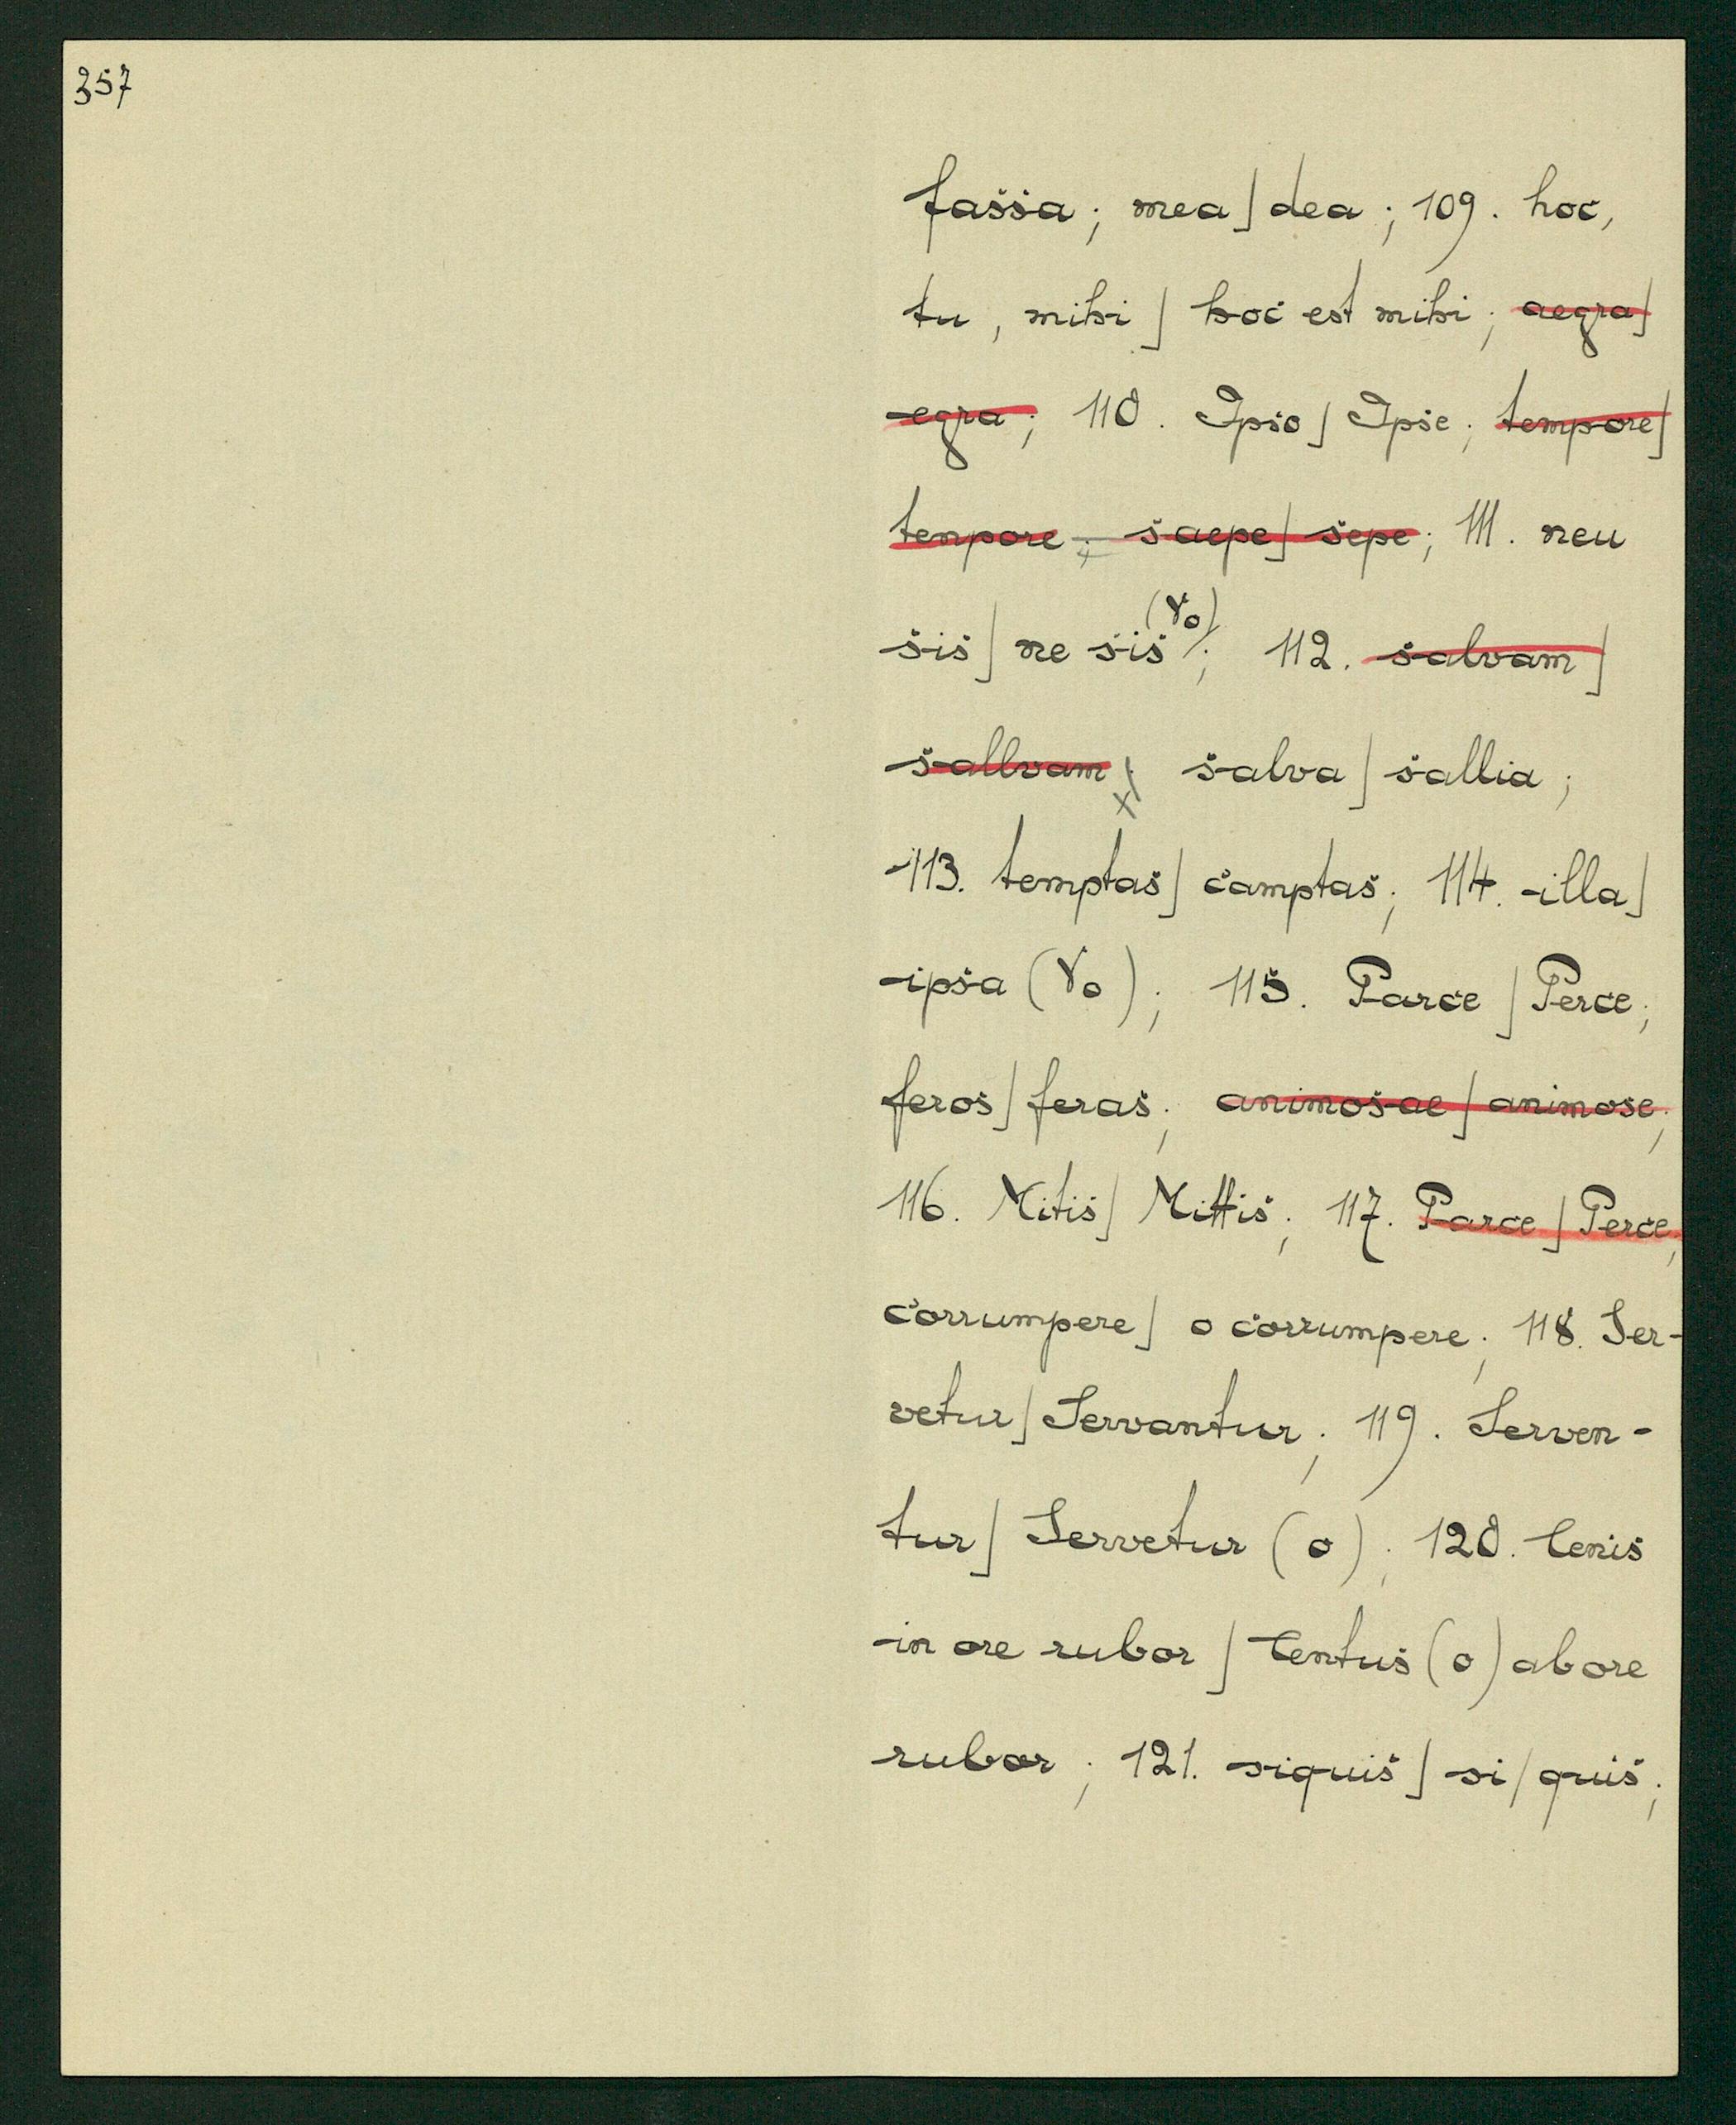 357
fassa; mea] dea; 109. hoc,
tu, mihi] hoc est mihi; aegra]
egra; 110. Ipso] Ipse; tempore]
tenpore; saepe] sepe; 111. neu
sis] ne sis (Vo); 112. salvam]
sallvam; salva] sallia;
113. temptas] camptas; 114. illa]
ipsa (Vo); 115. Parce] Perce;
feros] feras; animosae] animose;
116. Mitis] Mittis; 117. Parce] Perce;
corrumpere] o corrumpere; 118. Ser-
vetur] Servantur; 119. Serven-
tur] Servetur (o); 120. lenis
in ore rubor] lentus (o) ab ore
rubor; 121. siquis] si/quis;